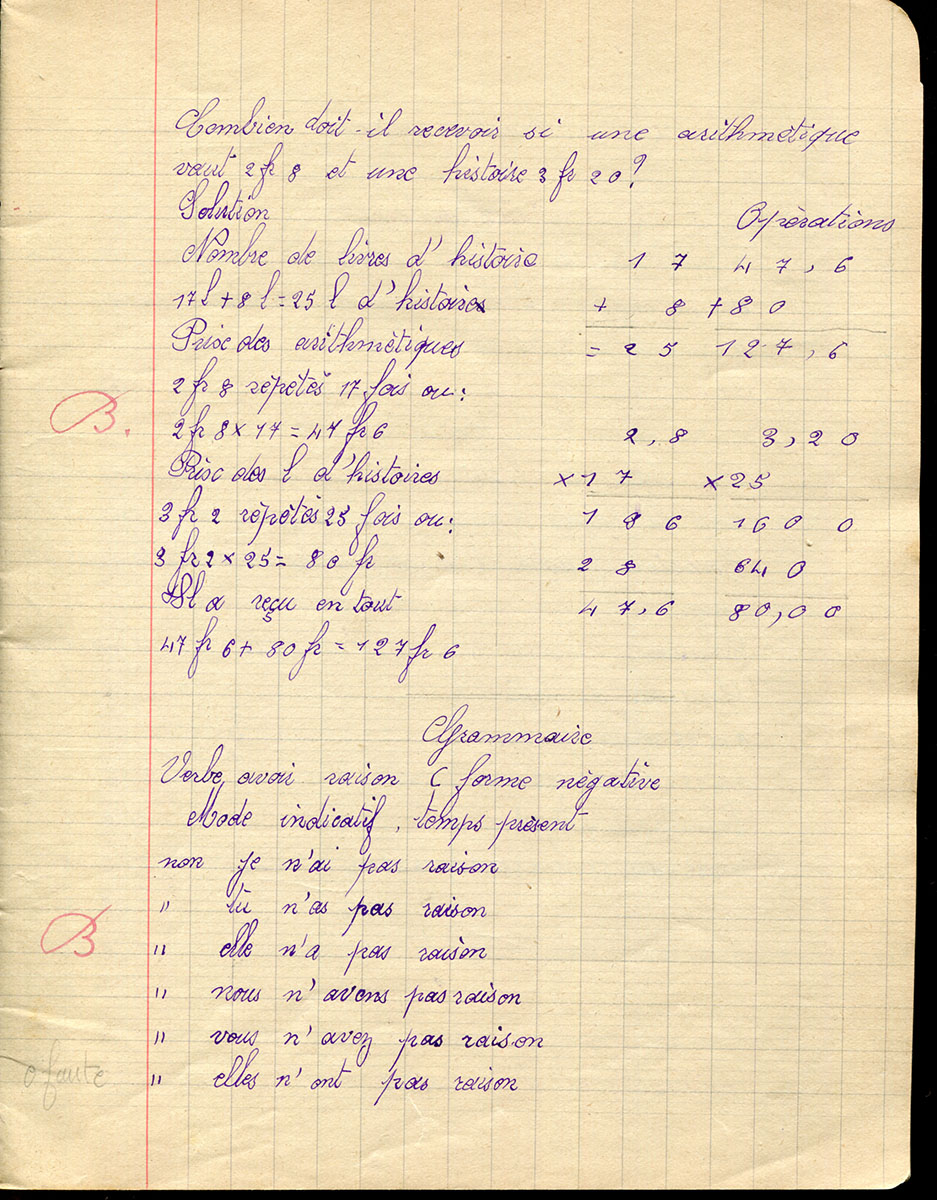 Combien doit-il recevoir si une arithmétique
vaut 2 fr 8 et une histoire 3 fr 20?
Solution Opérations
Nombre de livres d'histoire 17 47,6
17 l + 8 l = 25 l d'histoires + 8 +80
Prix des arithmétiques = 25 127,6
2 fr 8 répétés 17 fois ou:
B.
2 fr 8 × 17 = 47 fr 6 2,8 3,20
Prix des l d'histoires ×17 ×25
3 fr 2 répétés 25 fois ou: 186 1600
3 fr 2 × 25 = 80 fr 28 640
Il a reçu en tout 47,6 80,00
47 fr 6 + 80 fr = 127 fr 6
Grammaire
Verbe avoir raison ( forme négative
Mode indicatif, temps présent
non je n'ai pas raison
" tu n'as pas raison
B
" elle n'a pas raison
" nous n'avons pas raison
" vous n'avez pas raison
0 faute
" elles n'ont pas raison